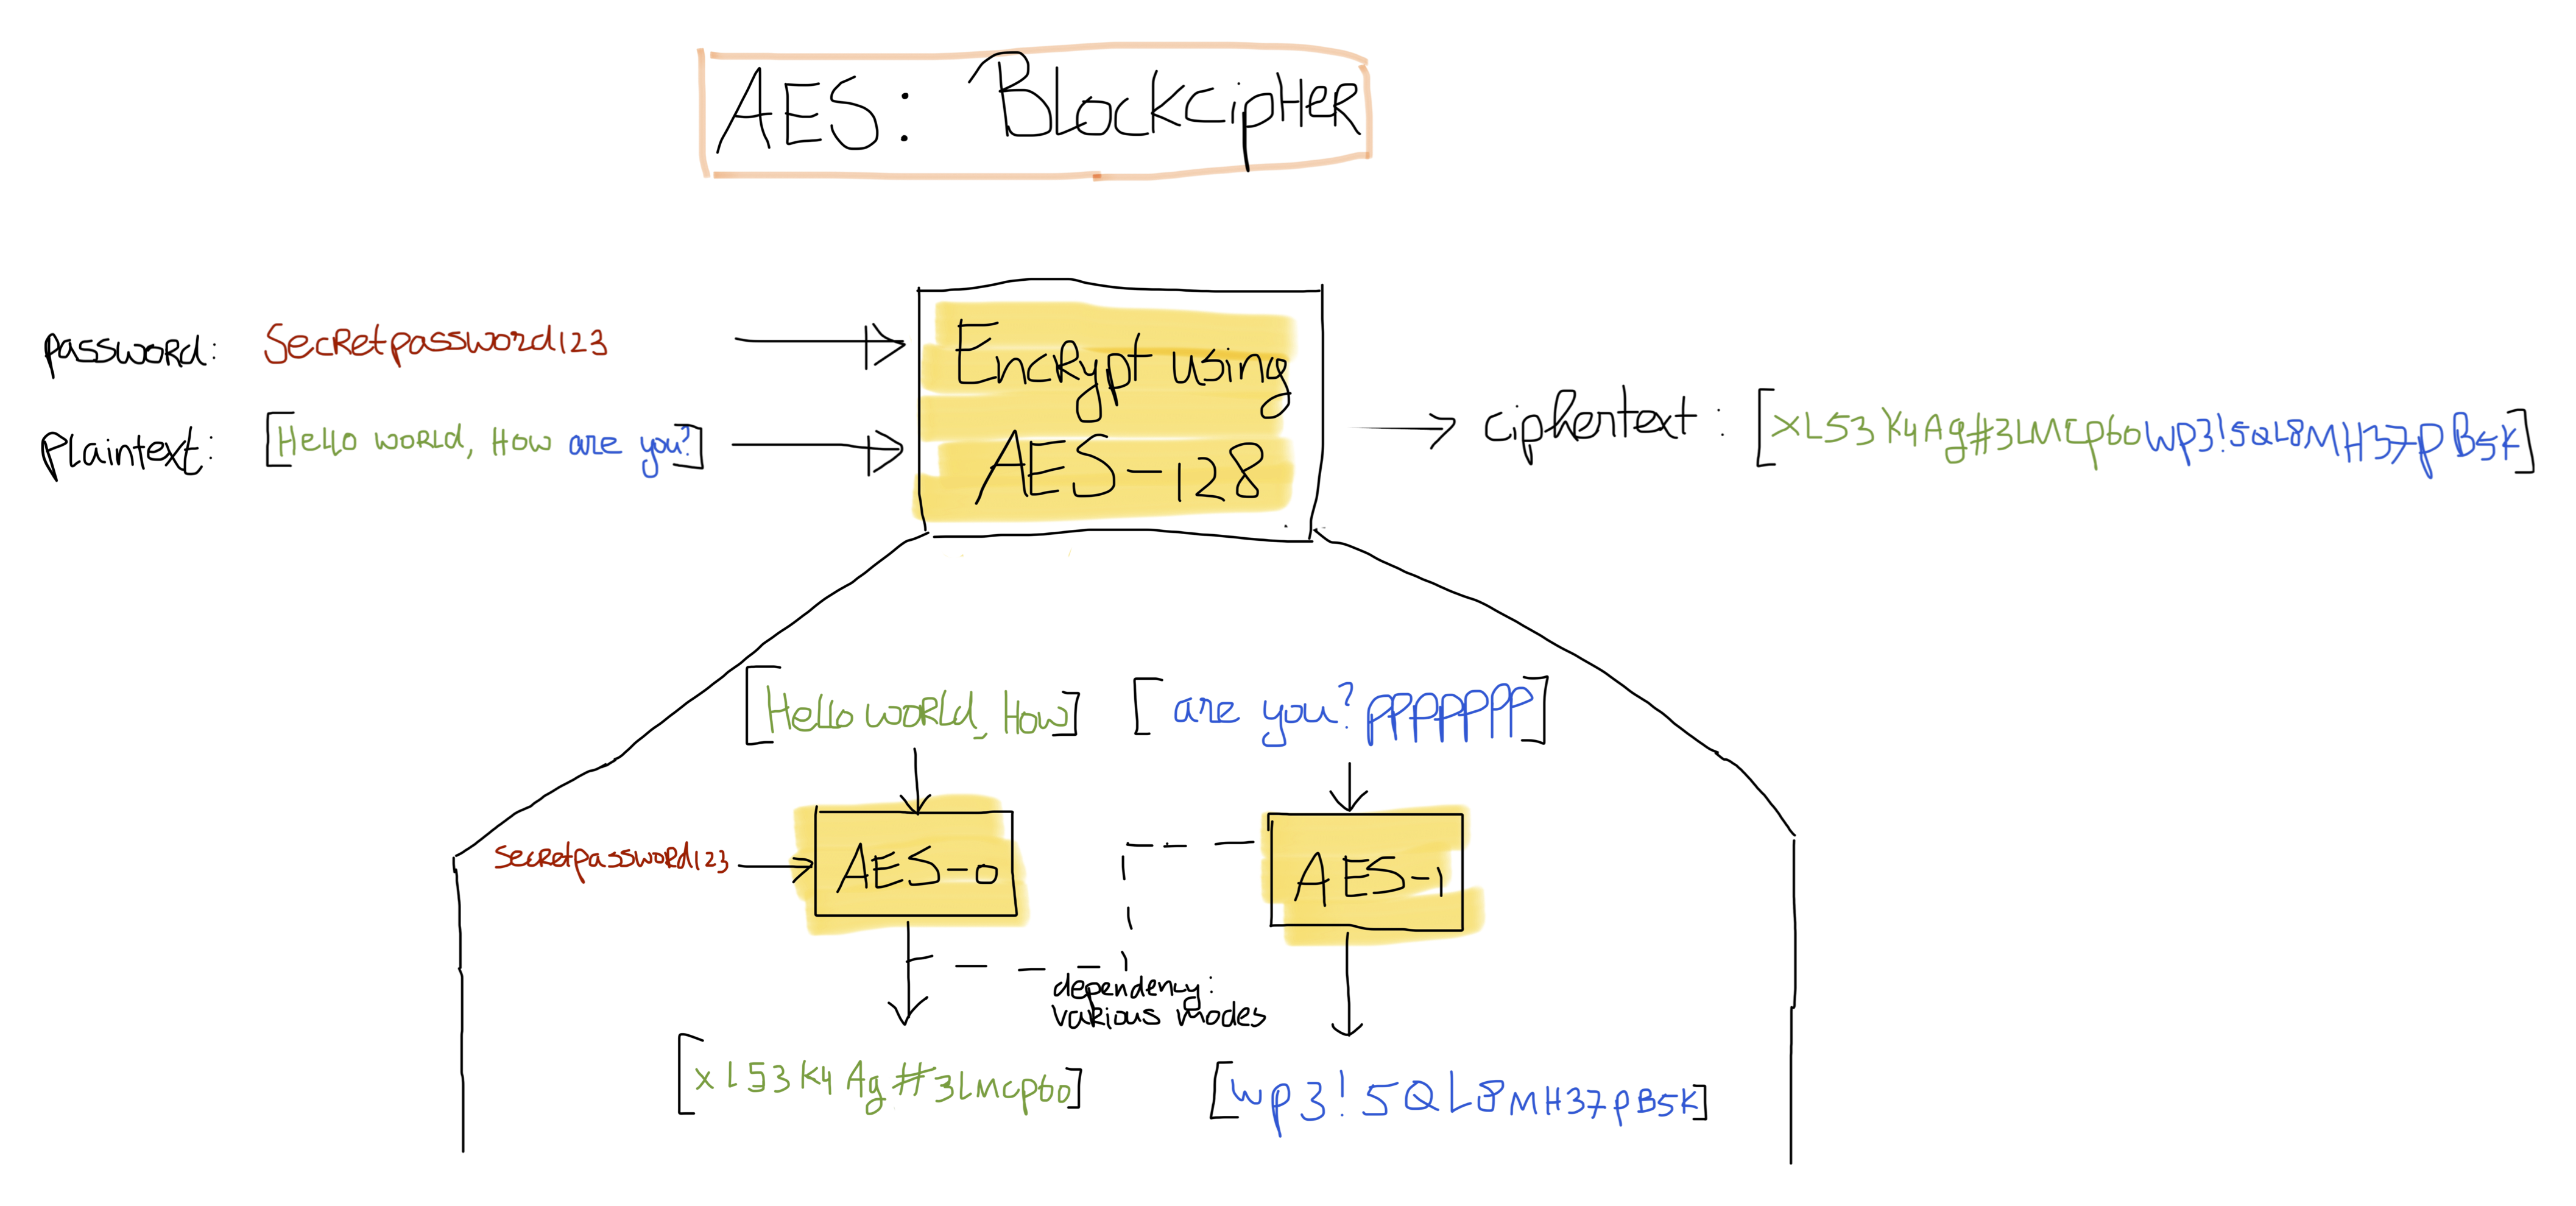 AES: BlockcipHeR
passwoRd: SecRetpassword123
plaintext: [Hello woRld, How are you?]
EncRypt using
AES-128
ciphertext: [xL53K4Ag#3LMCp60Wp3!5QL8MH37pB5K]
[Hello woRld, How] [are you? PPPPPPP]
secRetpasswoRd123
AES-0
AES-1
dependency:
vaRious modes
[xL53K4Ag#3LMCp60]
[Wp3!5QL8MH37pB5K]